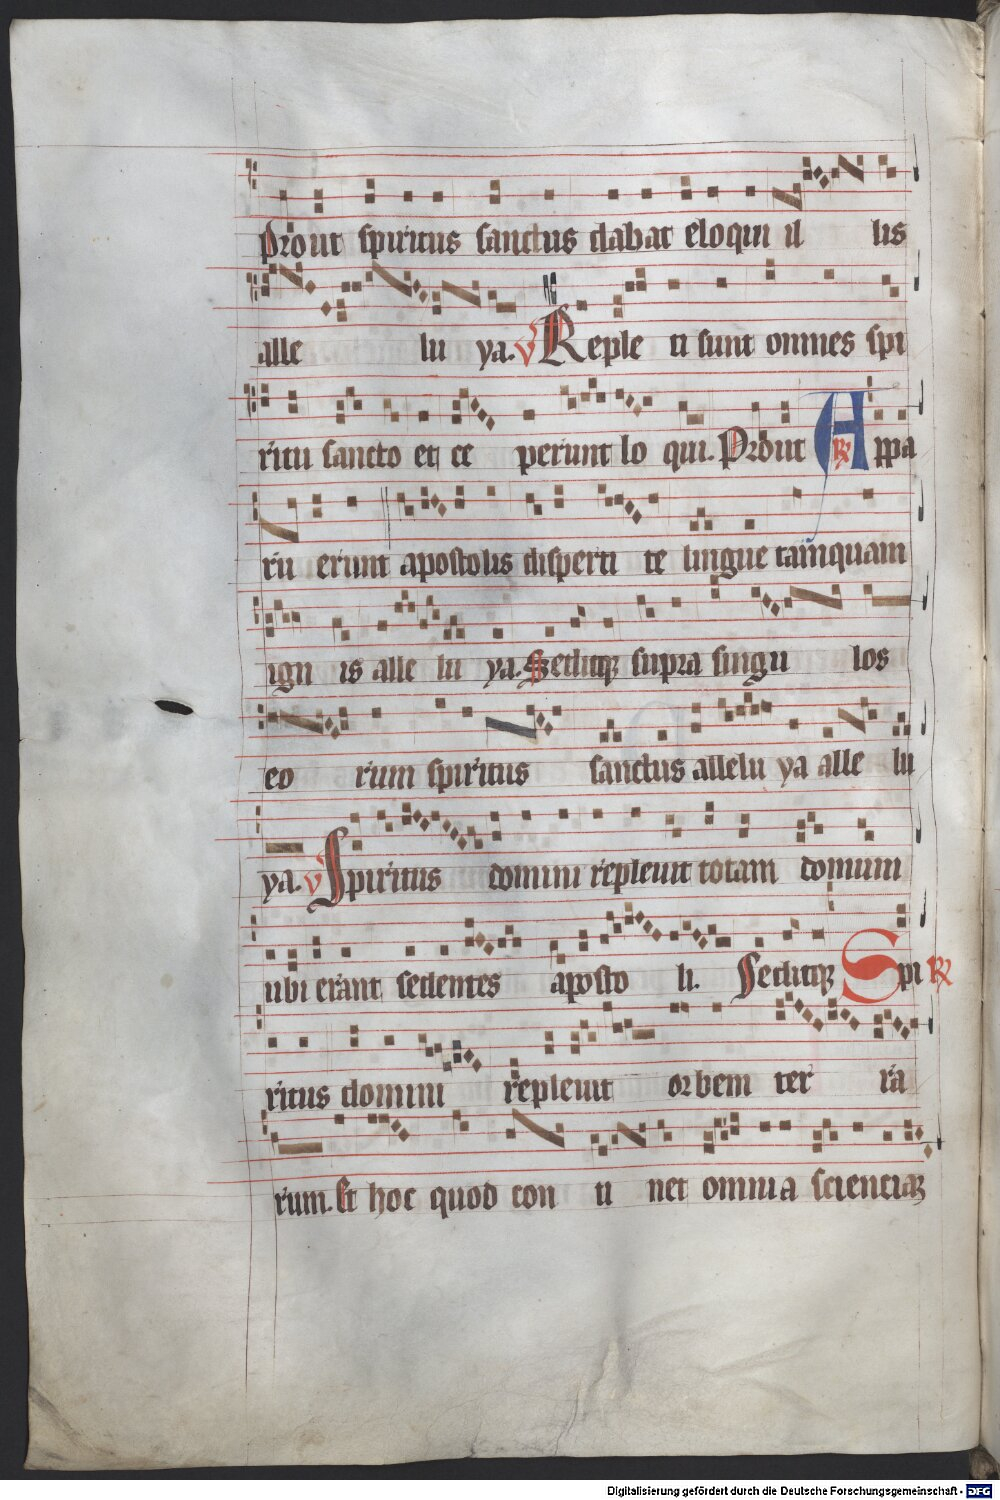 prout spiritus sanctus dabat eloqui il lis
alle lu ya. V Reple ti sunt omnes spi
ritu sancto et ce perunt lo qui. Prout R Appa
ru erunt apostolis disperti te lingue tamquam
ign is alle lu ya. Seditqꝫ supra singu los
eo rum spiritus sanctus allelu ya alle lu
ya. V Spiritus domini repleuit totam domum
ubi erant sedentes aposto li. Seditqꝫ Spi R
ritus domini repleuit orbem ter ra
rum. Et hoc quod con ti net omnia scienciaꝫ
Digitalisierung gefördert durch die Deutsche Forschungsgemeinschaft - DFG